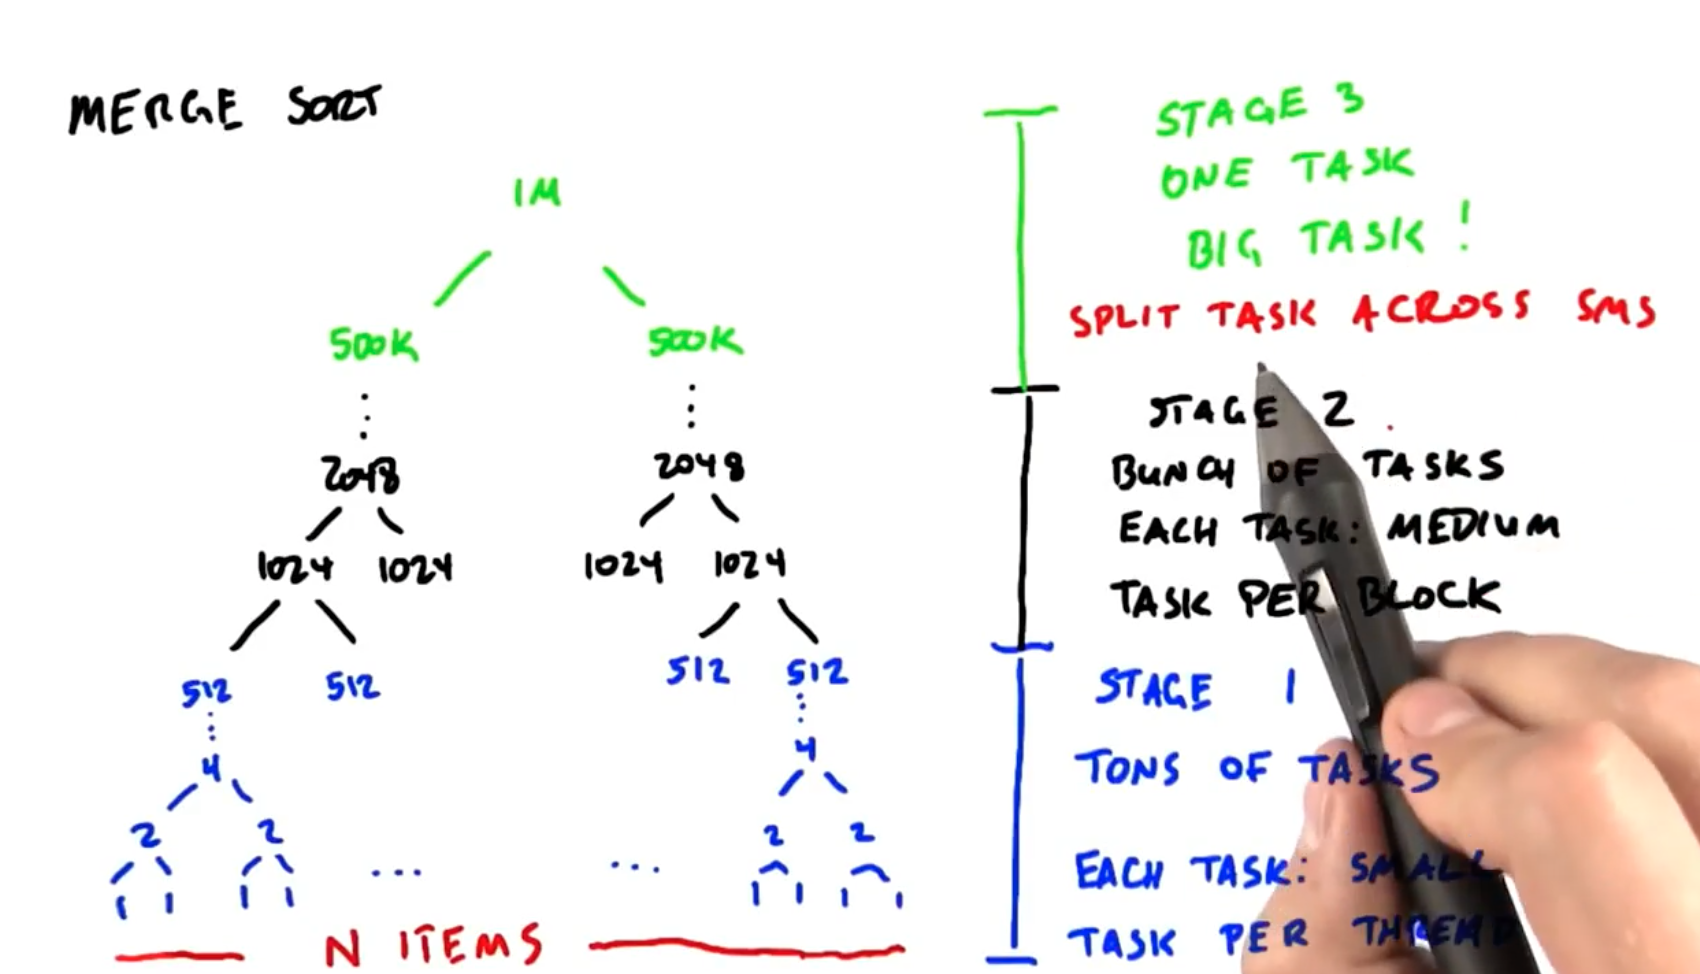 MERGE SORT
1M
500K 500K
2048 2048
1024 1024 1024 1024
512 512 512 512
4 4
2 2 2 2
1 1 1 1 ... ... 1 1 1 1
N ITEMS
STAGE 3
ONE TASK
BIG TASK!
SPLIT TASK ACROSS SMS
STAGE 2
BUNCH OF TASKS
EACH TASK: MEDIUM
TASK PER BLOCK
STAGE 1
TONS OF TASKS
EACH TASK: SMALL
TASK PER THREAD